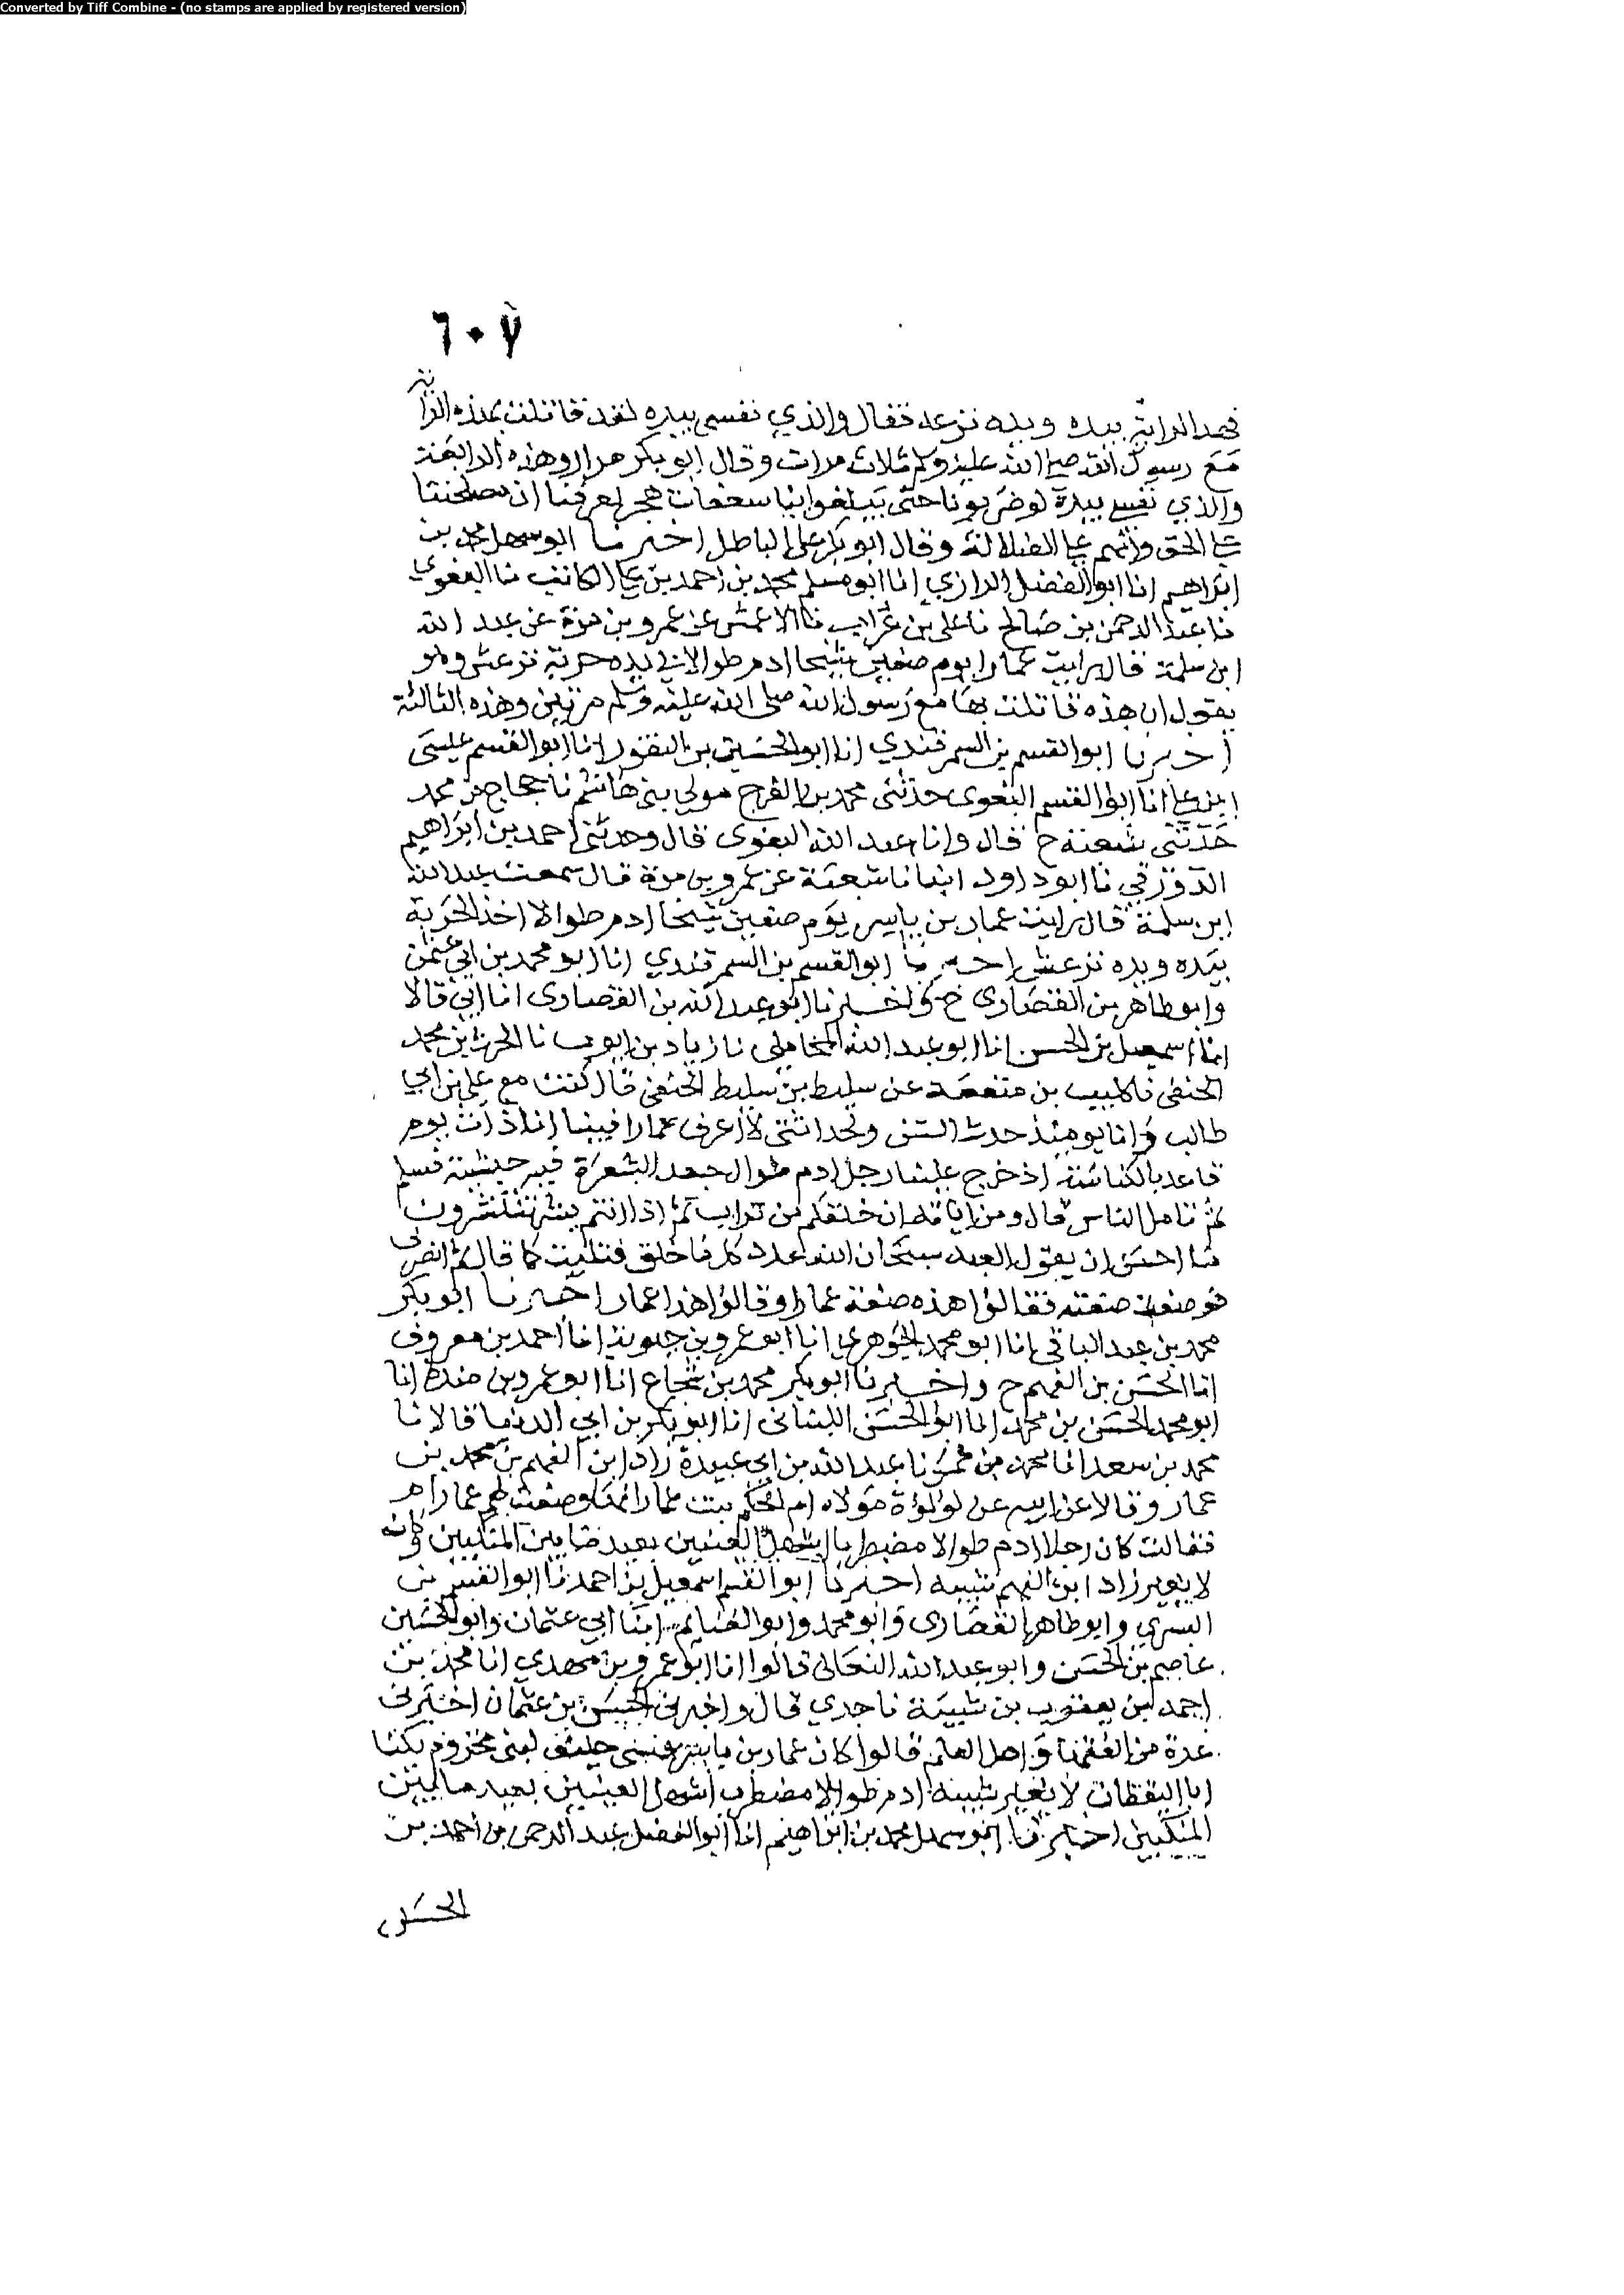 Converted by Tiff Combine - (no stamps are applied by registered version)
٦٠٧
الراية بيده ويده ترعد فقال والذي نفسي بيده لقد قاتلت بهذه الراية
مع رسول الله صلى الله عليه وسلم ثلاث مرات وقال ابو بكر مرار وهذه الرابعة
والذي نفسي بيده لو ضربونا حتى يبلغوا بنا سعفات هجر لعرفنا ان مصلحتنا
على الحق وانهم على الضلالة وقال ابو بكر على الباطل اخبرنا ابو سهل محمد بن
ابراهيم انا ابو الفضل الرازي انا ابو مسلم محمد بن احمد بن علي الكاتب نا البغوي
نا عبد الرحمن بن صالح نا علي بن غراب نا الاعمش عن عمرو بن مرة عن عبد الله
ابن سلمة قال رايت عمارا يوم صفين شيخا ادم طوالا في يده حربة ترعش وهو
يقول ان هذه قاتلت بها مع رسول الله صلى الله عليه وسلم مرتين وهذه الثالثة
اخبرنا ابو القسم بن السمرقندي انا ابو الحسين بن النقور انا ابو القسم عيسى
ابن علي انا ابو القسم البغوي حدثني محمد بن الفرج مولى بني هاشم نا حجاج بن محمد
حدثني شعبة ح قال وانا عبد الله البغوي قال وحدثني احمد بن ابراهيم
الدورقي نا ابو داود انبانا شعبة عن عمرو بن مرة قال سمعت عبد الله
ابن سلمة قال رايت عمار بن ياسر يوم صفين شيخا ادم طوالا اخذ الحربة
بيده ويده ترعش اخبرنا ابو القسم بن السمرقندي انا ابو محمد بن ابي عثمن
وابو طاهر بن القصاري ح واخبرنا ابو عبد الله بن القصاري انا ابي قالا
انا اسمعيل بن الحسن انا ابو عبد الله المحاملي نا زياد بن ايوب نا الحرث بن محمد
الحنفي نا كليب بن منفعة عن سليط بن سليط الحنفي قال كنت مع علي بن ابي
طالب وانا يومئذ حدث السن ولحداثتي لا اعرف عمارا فبينا انا ذات يوم
قاعد بالكناسة اذ خرج علينا رجل ادم طوال جعد الشعرة فيه حبشية فسلم
ثم تامل الناس قال ومن اياته ان خلقكم من تراب ثم اذا انتم بشر تنتشرون
ما احسن ان يقول العبد سبحان الله عدد كل ما خلق فتليت كما قال ثم انصرف
فوصفت صفته فقالوا هذه صفة عمار وقالوا هذا عمار اخبرنا ابو بكر
محمد بن عبد الباقي انا ابو محمد الجوهري انا ابو عمرو بن حيوية انا احمد بن معروف
انا الحسن بن الفهم ح واخبرنا ابو بكر محمد بن شجاع انا ابو عمرو بن مندة انا
ابو محمد الحسن بن محمد انا ابو الحسن اللبناني انا ابو بكر بن ابي الدنيا قالا نا
محمد بن سعد انا محمد بن عمر نا عبد الله بن ابي عبيدة زاد ابن الفهم بن محمد بن
عمار وقالا عن ابيه عن لؤلؤة مولاه ام الحكم بنت عمار انها وصفت لهم عمارا
فقالت كان رجلا ادم طوالا مضطربا اشهل العينين بعيد ما بين المنكبين وكان
لا يغير زاد ابن الفهم شيبه اخبرنا ابو القسم اسمعيل بن احمد نا ابو القسم بن
البسري وابو طاهر القصاري وابو محمد وابو الغنايم ابنا ابي عثمان وابو الحسين
عاصم بن الحسن وابو عبد الله النعالي قالوا انا ابو عمرو بن مهدي انا محمد بن
احمد بن يعقوب بن شيبة نا جدي قال واخبرني الحسن بن عثمان اخبرني
عدة من الفقها واهل العلم قالوا كان عمار بن ياسر عنسي حليف لبني مخزوم يكنا
ابا اليقظان لا يغير شيبه ادم طوالا مضطرب اشهل العينين بعيد ما بين
المنكبين اخبرنا ابو سهل محمد بن ابراهيم انا ابو الفضل عبد الرحمن بن احمد بن
الحسن